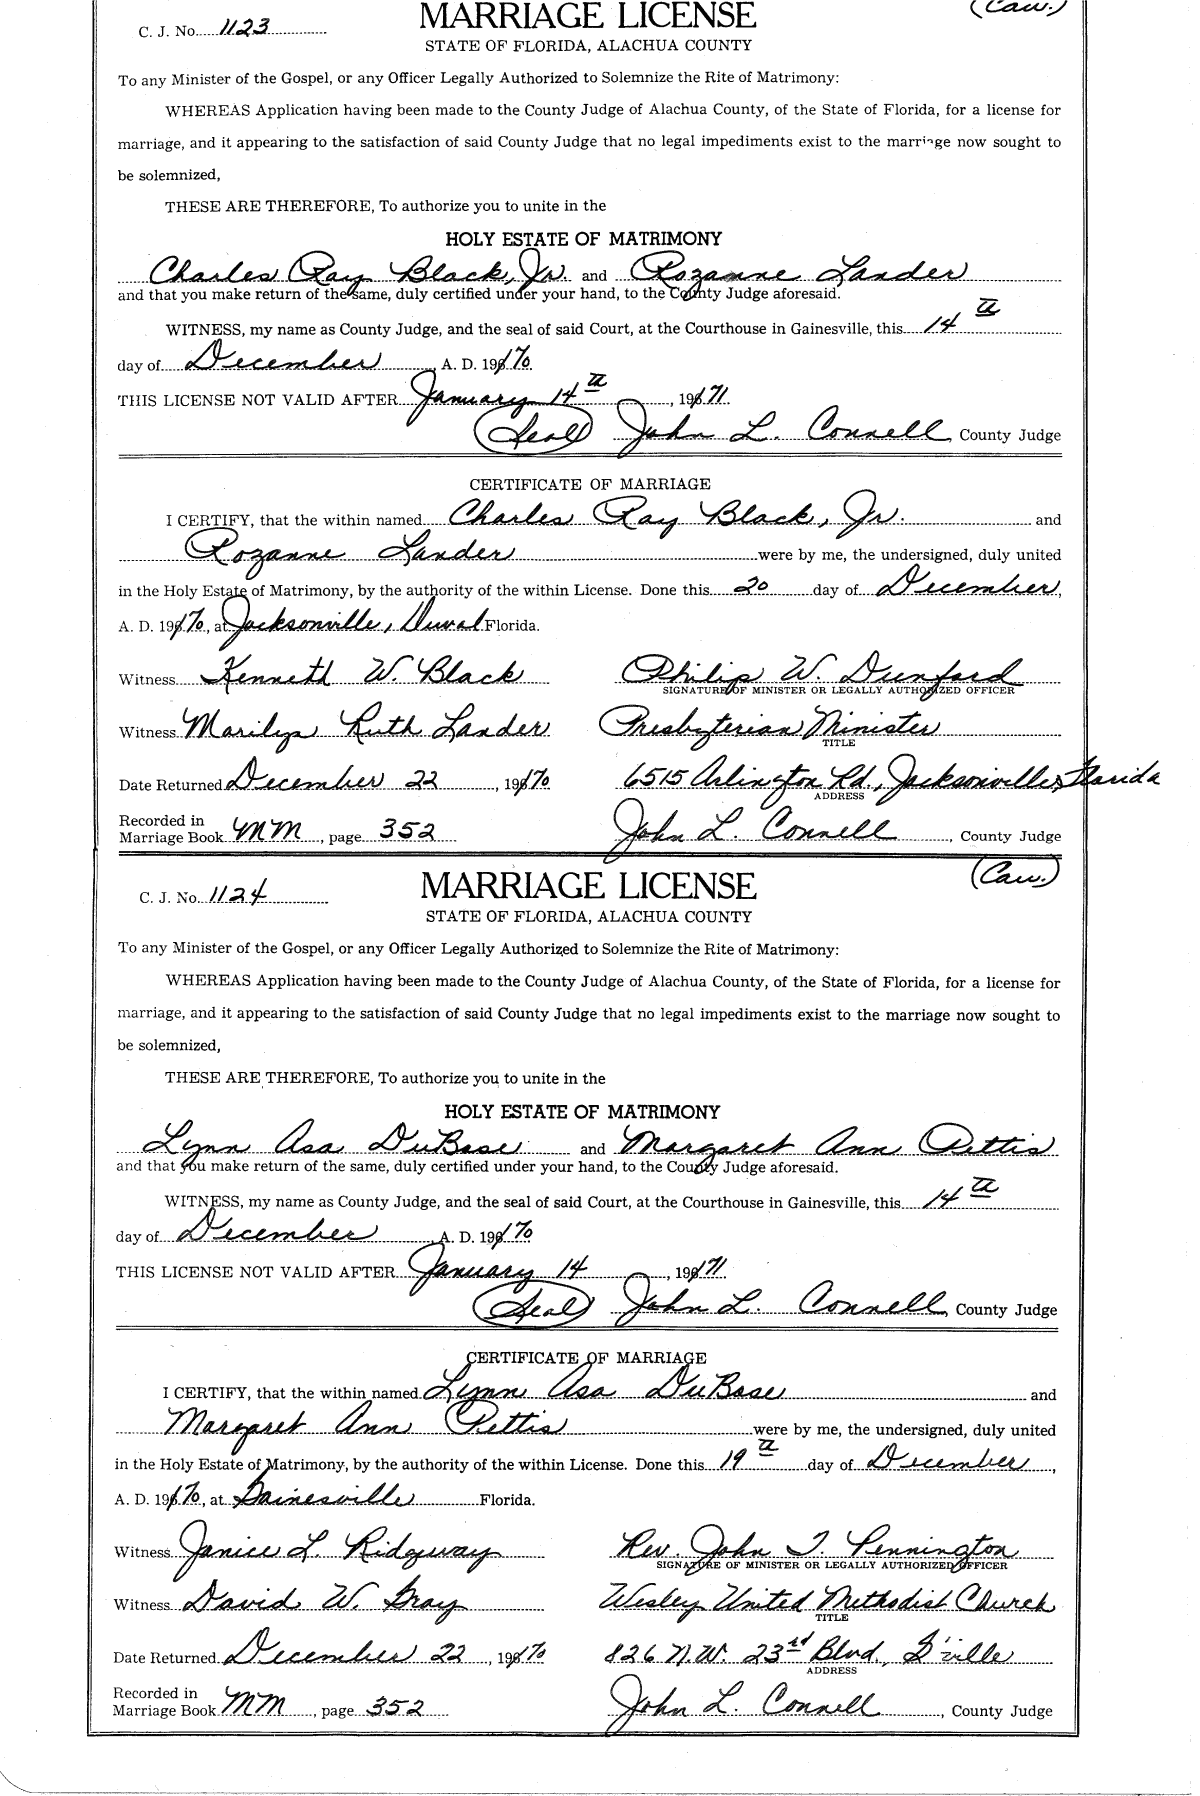 (Cau.)
C. J. No. 1123
MARRIAGE LICENSE
STATE OF FLORIDA, ALACHUA COUNTY
To any Minister of the Gospel, or any Officer Legally Authorized to Solemnize the Rite of Matrimony:
WHEREAS Application having been made to the County Judge of Alachua County, of the State of Florida, for a license for
marriage, and it appearing to the satisfaction of said County Judge that no legal impediments exist to the marriage now sought to
be solemnized,
THESE ARE THEREFORE, To authorize you to unite in the
HOLY ESTATE OF MATRIMONY
Charles Ray Black, Jr. and Rozanne Lander
and that you make return of the same, duly certified under your hand, to the County Judge aforesaid.
WITNESS, my name as County Judge, and the seal of said Court, at the Courthouse in Gainesville, this 14th
day of December A. D. 1970
THIS LICENSE NOT VALID AFTER January 14th, 1971
(Seal) John L. Connell, County Judge
CERTIFICATE OF MARRIAGE
I CERTIFY, that the within named Charles Ray Black, Jr. and
Rozanne Lander were by me, the undersigned, duly united
in the Holy Estate of Matrimony, by the authority of the within License. Done this 20 day of December,
A. D. 1970, at Jacksonville, Duval Florida.
Witness Kenneth W. Black Philip W. Dunford
SIGNATURE OF MINISTER OR LEGALLY AUTHORIZED OFFICER
Witness Marilyn Ruth Lander Presbyterian Minister
TITLE
Date Returned December 22, 1970 6515 Arlington Rd., Jacksonville, Florida
ADDRESS
Recorded in
Marriage Book MM, page 352 John L. Connell, County Judge
(Cau.)
C. J. No. 1124
MARRIAGE LICENSE
STATE OF FLORIDA, ALACHUA COUNTY
To any Minister of the Gospel, or any Officer Legally Authorized to Solemnize the Rite of Matrimony:
WHEREAS Application having been made to the County Judge of Alachua County, of the State of Florida, for a license for
marriage, and it appearing to the satisfaction of said County Judge that no legal impediments exist to the marriage now sought to
be solemnized,
THESE ARE THEREFORE, To authorize you to unite in the
HOLY ESTATE OF MATRIMONY
Lynn Asa DuBose and Margaret Ann Pettis
and that you make return of the same, duly certified under your hand, to the County Judge aforesaid.
WITNESS, my name as County Judge, and the seal of said Court, at the Courthouse in Gainesville, this 14th
day of December A. D. 1970
THIS LICENSE NOT VALID AFTER January 14, 1971
(Seal) John L. Connell, County Judge
CERTIFICATE OF MARRIAGE
I CERTIFY, that the within named Lynn Asa DuBose and
Margaret Ann Pettis were by me, the undersigned, duly united
in the Holy Estate of Matrimony, by the authority of the within License. Done this 19th day of December,
A. D. 1970, at Gainesville Florida.
Witness Janice L. Ridgway Rev. John T. Pennington
SIGNATURE OF MINISTER OR LEGALLY AUTHORIZED OFFICER
Witness David W. Gray Wesley United Methodist Church
TITLE
Date Returned December 22, 1970 826 N.W. 23rd Blvd., G'ville
ADDRESS
Recorded in
Marriage Book MM, page 352 John L. Connell, County Judge